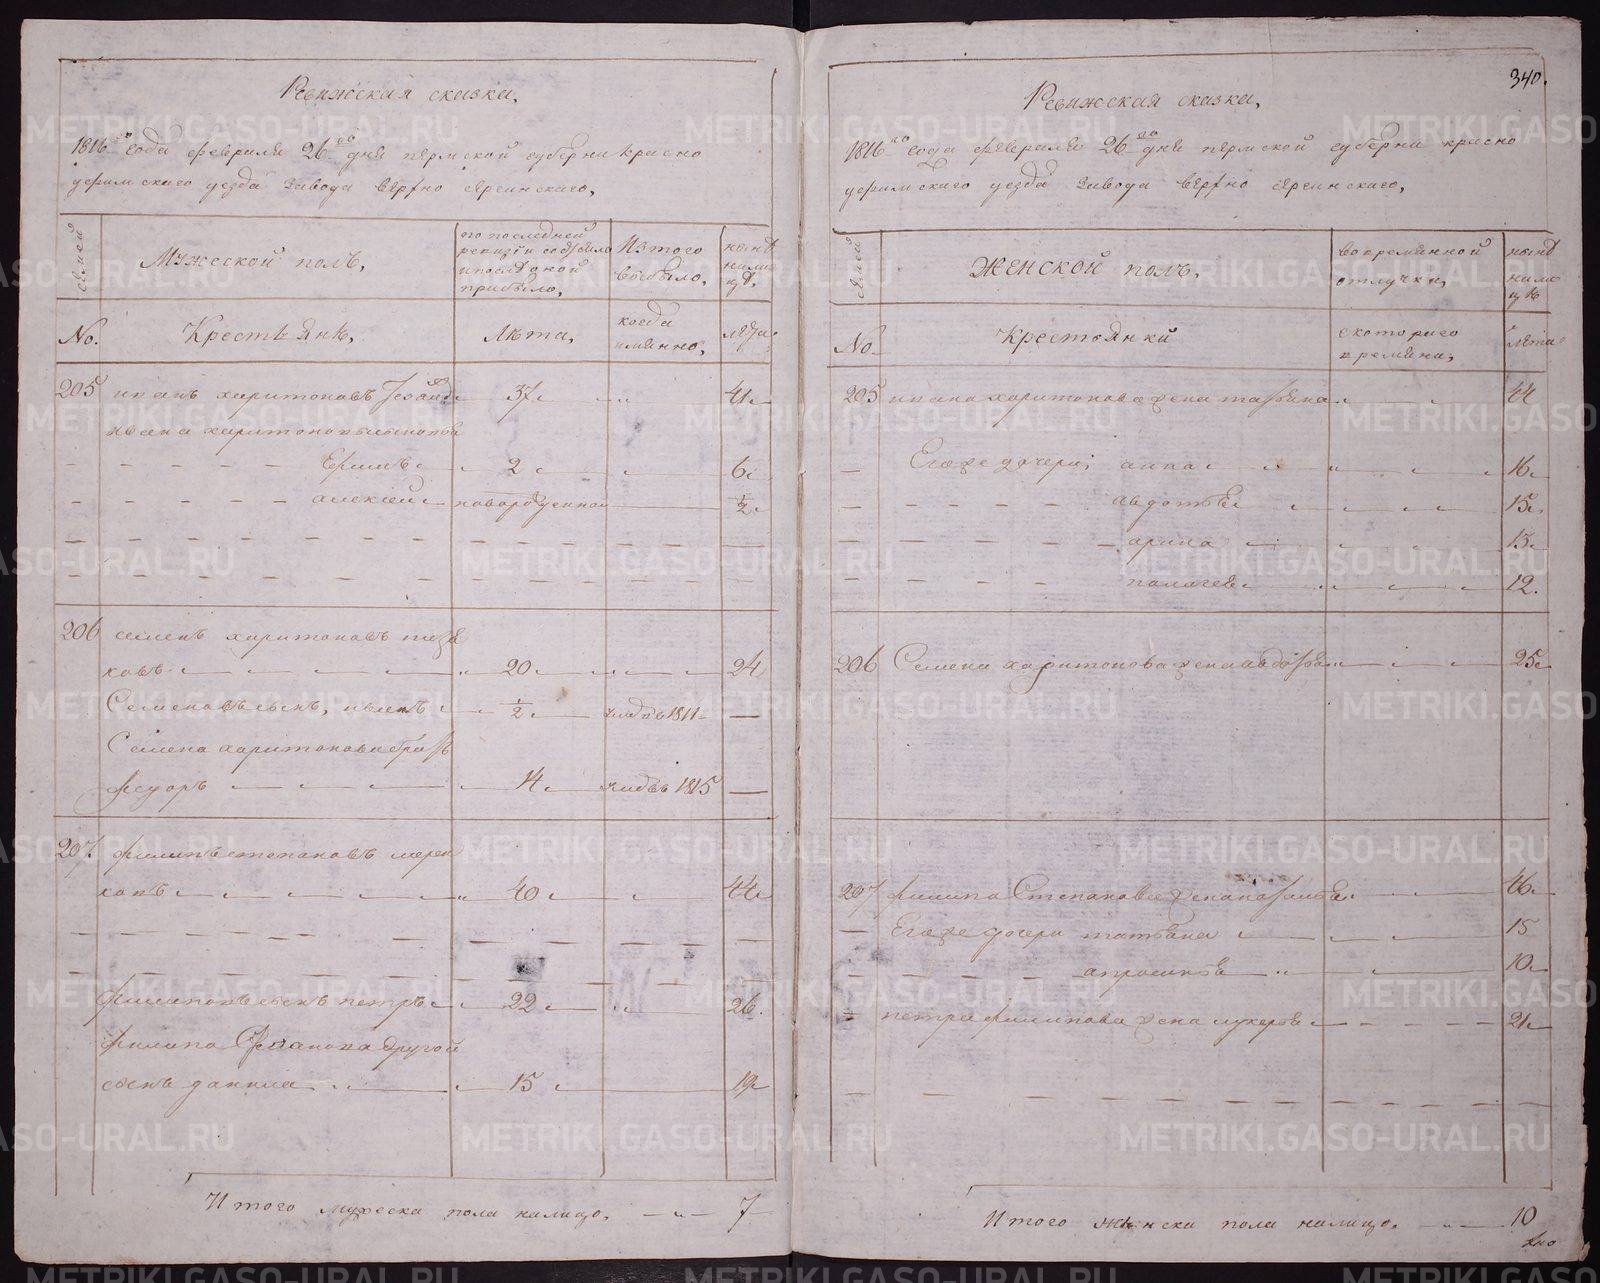 Ревижская сказка,
1816 го года февраля 26 го дня пермской губерни красно
уфимскаго уезда завода верхно сергинскаго,
семей
Мужеской полъ,
по последней ревизіи состояло и после оной прибыло,
Изтого выбыло,
ныне налицо.
No.
Крестьянѣ,
Лѣта,
когда имянно,
лета
205 иванъ харитоновъ 37 41
ивана харитонова сыновья
ефимъ 2 6
алексей новорожденной ½
206 семенъ харитоновъ
ковъ 20 24
Семеновъ сынъ, ивленъ ½ умръ въ 1811 —
Семена харитонова братъ
федоръ 14 умръ въ 1815 —
207. филипъ степановъ мерен
ковъ 40 44
филиповъ сынъ петръ 22 26.
филипа Степанова другой
сынъ данила 15 19
Итого мужеска пола налицо. 7
340.
Ревижская сказка,
1816 го года февраля 26 го дня пермской губерни красно
уфимскаго уезда завода верхно сергинскаго,
семей
Женской полъ,
во временной отлучки,
ныне налицѣ
No.
Крестьянки
скотораго времяни,
лета
205 ивана харитонова жена татьяна 44
Егоже дочери, анна 16
авдотья 15
арина 13
палагея 12.
206 Семена харитонова жена авдотья 25
207 филипа Степанова жена 46
Егоже дочери татьяна 15
апросинья 10
петра филипова жена лукерья 21
Итого женска пола налицо. 10